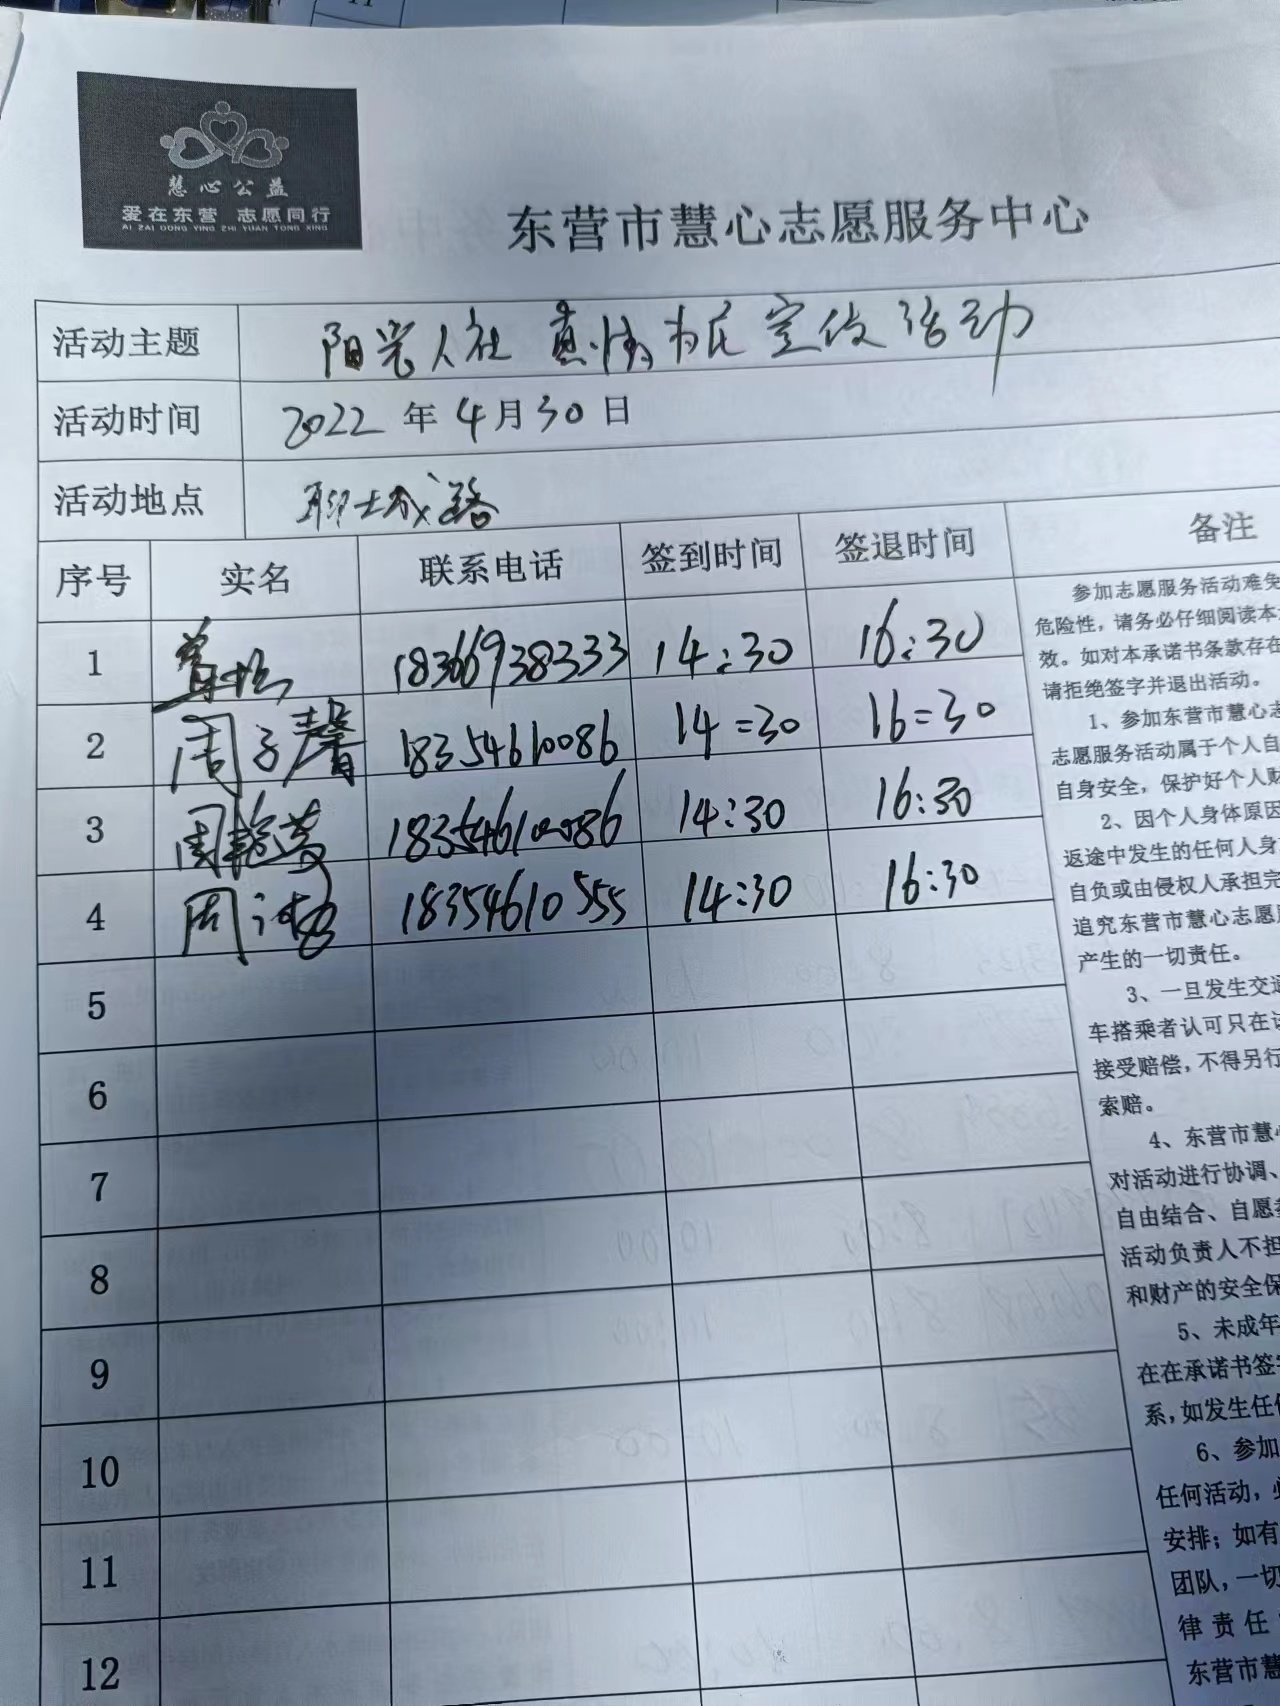 慧心公益
爱在东营 志愿同行
AI ZAI DONG YING ZHI YUAN TONG XING
东营市慧心志愿服务中心
活动主题 阳光人社 真情为民 宣传活动
活动时间 2022年4月30日
活动地点 聊城路
序号 实名 联系电话 签到时间 签退时间 备注
1 18366938333 14:30 16:30
2 周子馨 18354610086 14:30 16:30
3 周 18354610086 14:30 16:30
4 周 18354610555 14:30 16:30
5
6
7
8
9
10
11
12
参加志愿服务活动难免
危险性，请务必仔细阅读本
效。如对本承诺书条款存在
请拒绝签字并退出活动。
1、参加东营市慧心志
志愿服务活动属于个人自
自身安全，保护好个人财
2、因个人身体原因
返途中发生的任何人身
自负或由侵权人承担完
追究东营市慧心志愿
产生的一切责任。
3、一旦发生交通
车搭乘者认可只在该
接受赔偿，不得另行
索赔。
4、东营市慧心
对活动进行协调、
自由结合、自愿参
活动负责人不担
和财产的安全保
5、未成年
在在承诺书签字
系，如发生任何
6、参加
任何活动，必
安排；如有
团队，一切
律责任
东营市慧